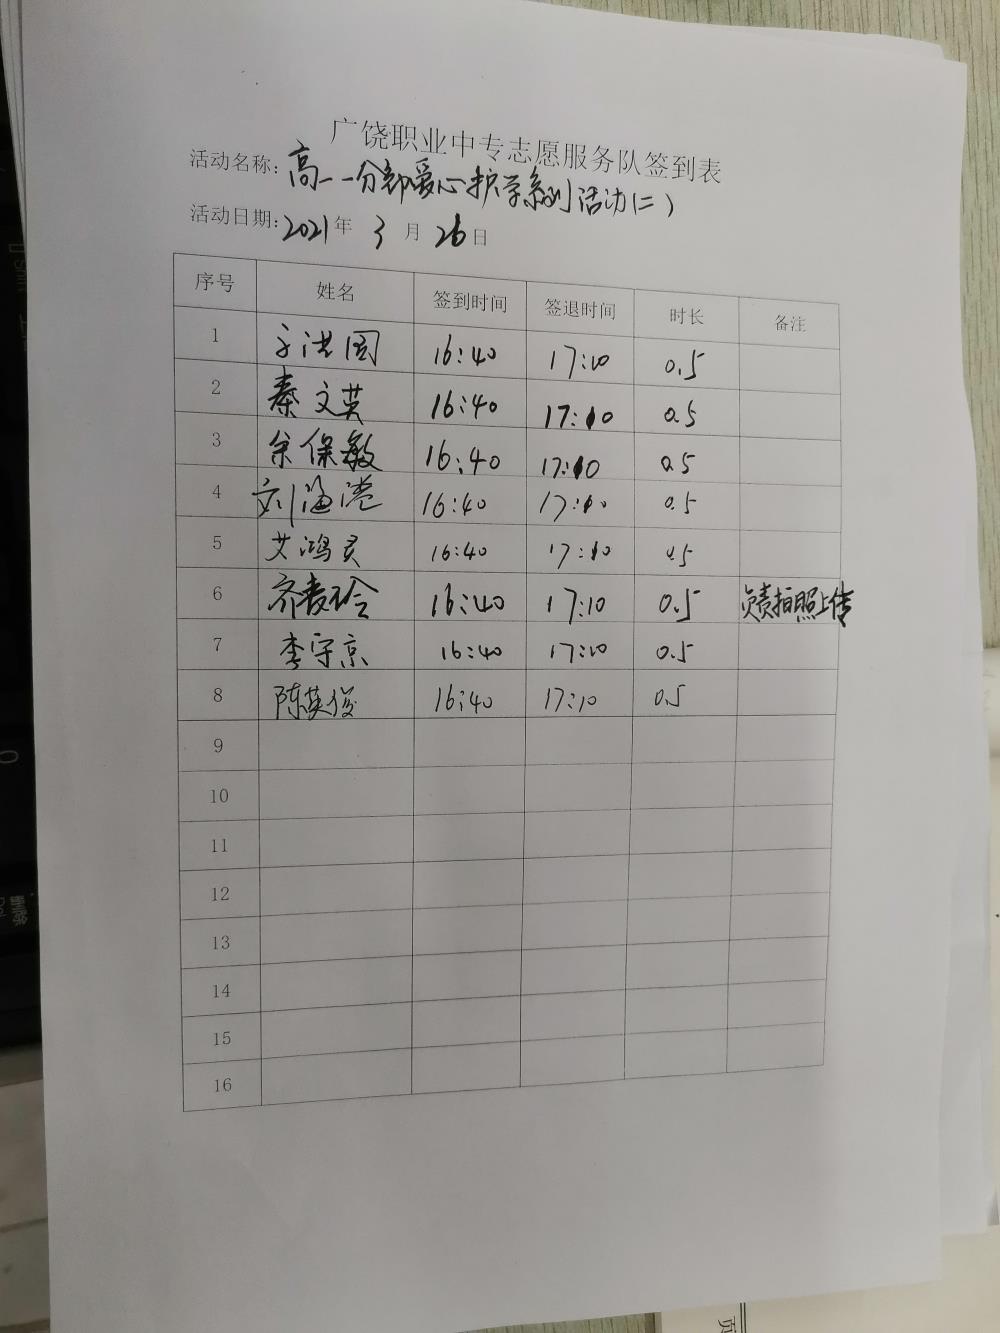 广饶职业中专志愿服务队签到表
活动名称: 高一一分部爱心护学系列活动(二)
活动日期: 2021 年 3 月 26 日
序号 姓名 签到时间 签退时间 时长 备注
1 于洪国 16:40 17:10 0.5
2 秦文英 16:40 17:10 0.5
3 余保敏 16:40 17:10 0.5
4 刘海港 16:40 17:10 0.5
5 艾鸿灵 16:40 17:10 0.5
6 齐麦玲 16:40 17:10 0.5 负责拍照上传
7 李守京 16:40 17:10 0.5
8 陈英俊 16:40 17:10 0.5
9
10
11
12
13
14
15
16